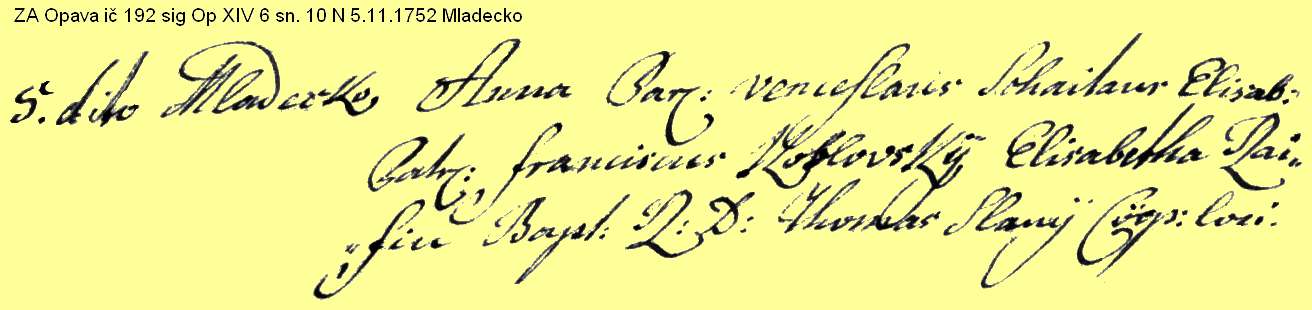 ZA Opava ič 192 sig Op XIV 6 sn. 10 N 5.11.1752 Mladecko
5. dito Mladecko Anna Par: Venceslaus Sohaitaus Elisab:
Patr: franciscus Koblovskÿ Elisabetha Rai„
„fin Bapt: R: D: Thomas Slanÿ Coop: loci: